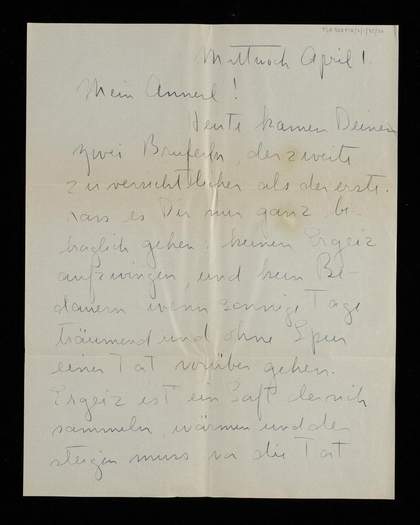 Mittwoch April 1.
Mein Annerl!
Heute kamen Deine
zwei Brieferln, der zweite
zuversichtlicher als der erste.
Lass es Dir nur ganz be-
haglich gehen. keinen Ergeiz
aufzwingen, und kein Be-
dauern wenn sonnige Tage
träumend und ohne Spur
einer Tat vorüber gehen.
Ergeiz ist ein Saft der sich
sammeln, wärmen und dann
steigen muss vor die Tat